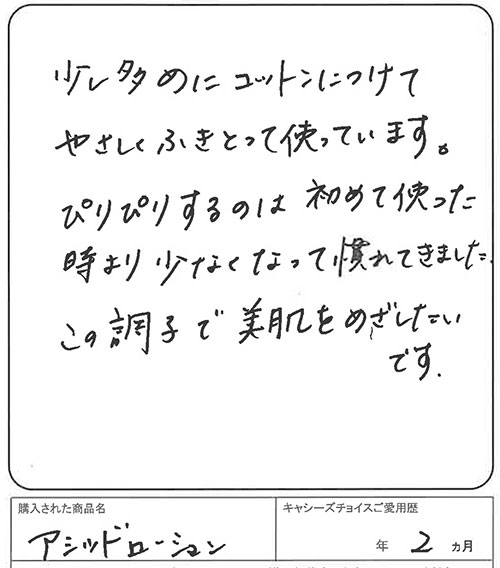 少し多めにコットンにつけて
やさしくふきとって使っています。
ぴりぴりするのは初めて使った
時より少なくなって慣れてきました。
この調子で美肌をめざしたい
です.
購入された商品名
キャシーズチョイスご愛用歴
アシッドローション
年 2 ヵ月